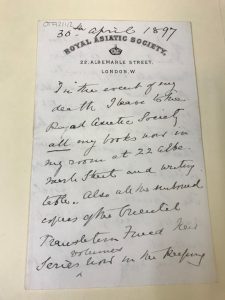 30th April 1897
ROYAL ASIATIC SOCIETY,
22, ALBEMARLE STREET,
LONDON, W.
In the event of my
death I leave to the
Royal Asiatic Society
all my books now in
my room at 22 Albe-
marle Street and writing
table. Also all the unbound
copies of the Oriental
Translation Fund New
Series volumes now in the keeping